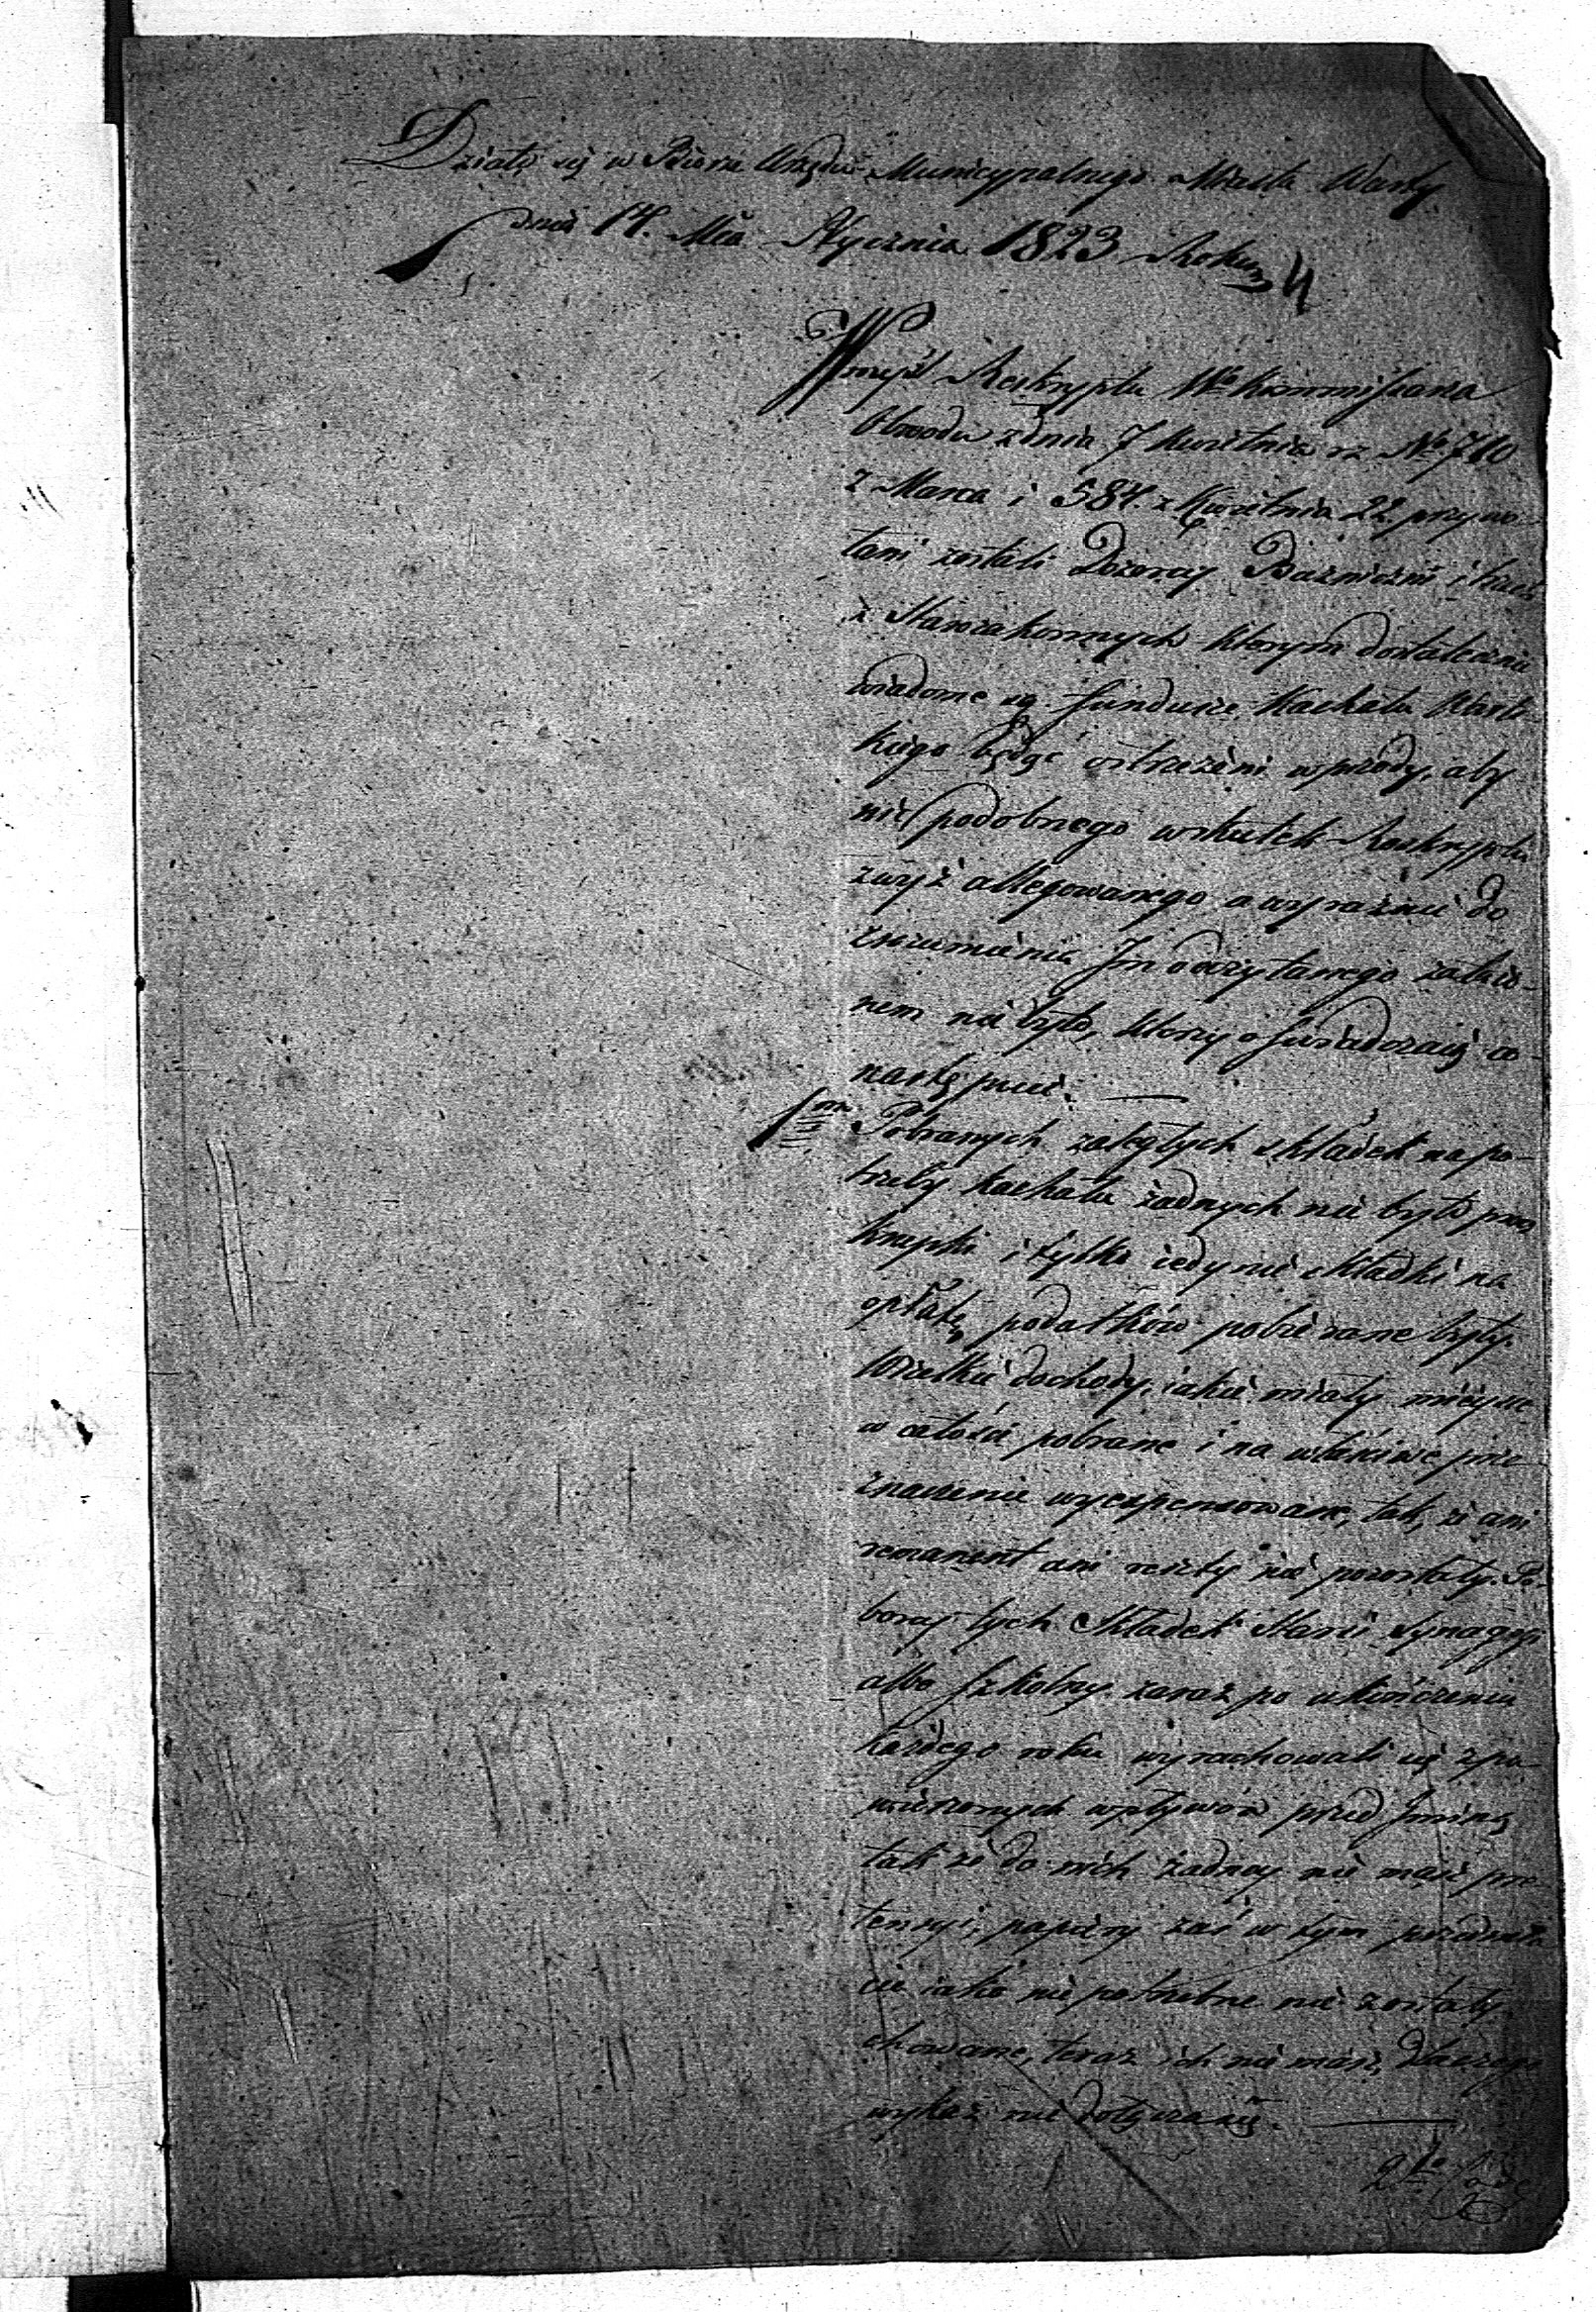 Działo się w Biorze Urzędu Municypalnego Miasta Warty
dnia 14. Mca Stycznia 1823 Roku
W myśl Reskryptu Wo Kommissarza
Obwodu z dnia 7 Kwietnia rz No 710
z Marca i 584. z Kwietnia 22 przywo-
łani zostali Dozorcy Bóżniczni i trzech
z Starozakonnych którym dostatecznie
wiadome są fundusze Kachału Wart-
kiego będąc ostrzeżeni wprzódy, aby
nic podobnego wskutek Reskryptu
zwyż allegowanego a wyraźnie do
zrozumienia Im odczytanego zataio-
nem nie było, którzy oświadczaią co
następuie. —
1mo Pobranych zaległych składek na po-
trzeby Kachału żadnych nie było prócz
krupki i tylko iedynie składki na
opłatę podatków pobierane były.
Wszelkie dochody, iakie miały mieysce
w całości pobrane i na właściwe prze-
znaczenie wyexpensowane, tak, że ani
remanent ani reszty nie pozostały. Po-
borcy tych Składek Starsi Synagogi
albo Szkolny zaraz po ukończeniu
każdego roku wyrachowali się z po-
wierzonych wpływów przed Gminą
tak że do nich żadney nie maią pre-
tensyi, papiery zaś w tym przedmio-
cie iako nie potrzebne nie zostały
chowane, teraz ich nie masz, dla czego
wykaz nie dołącza się. —
2do